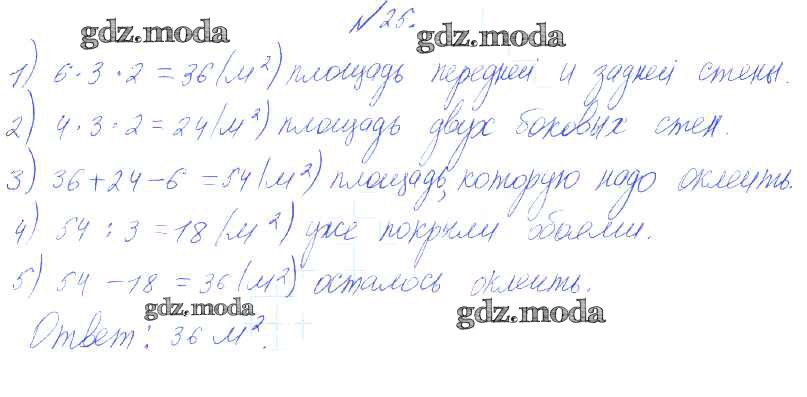 № 25.
gdz.moda gdz.moda
1) 6 · 3 · 2 = 36 (м²) площадь передней и задней стены.
2) 4 · 3 · 2 = 24 (м²) площадь двух боковых стен.
3) 36 + 24 - 6 = 54 (м²) площадь, которую надо оклеить.
4) 54 : 3 = 18 (м²) уже покрыли обоями.
5) 54 - 18 = 36 (м²) осталось оклеить.
gdz.moda gdz.moda
Ответ: 36 м².